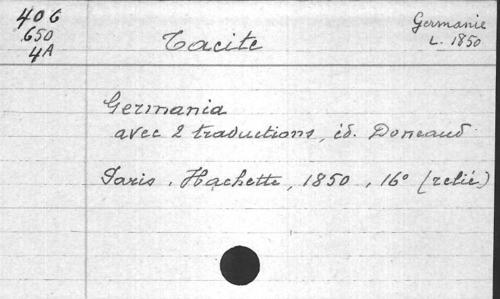 406
650
4A
Germanie
L. 1850
Tacite
Germania
avec 2 traductions, éd. Doneaud
Paris, Hachette, 1850, 16° (relié)